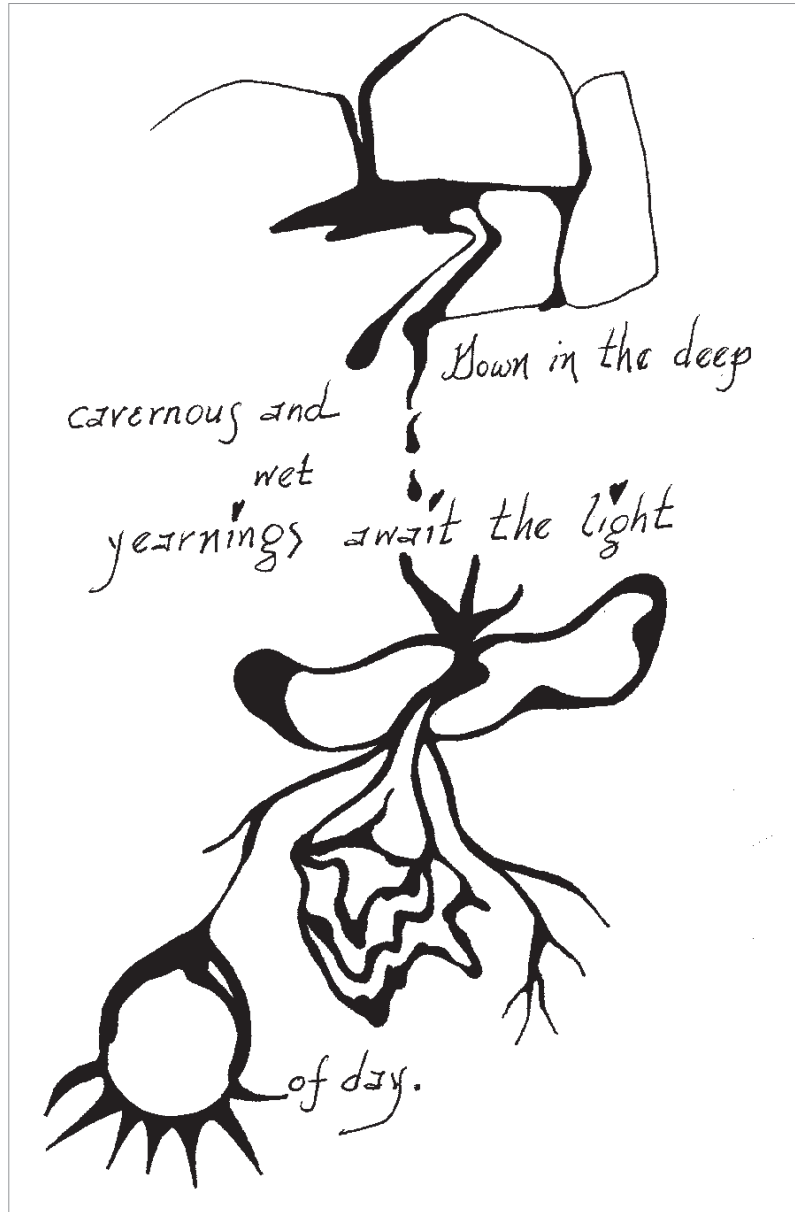 Down in the deep
cavernous and
wet
yearnings await the light
of day.